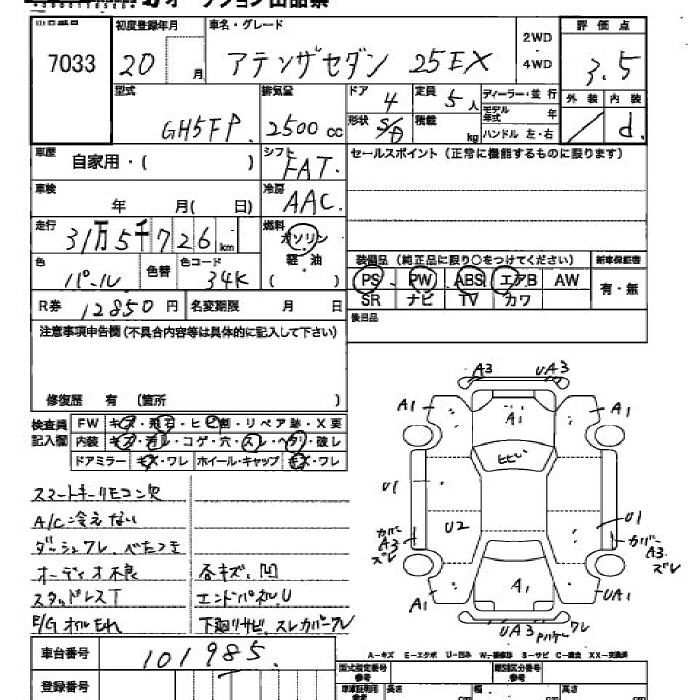 オークション出品票
出品番号
7033
初度登録年月
20 月
車名・グレード
アテンザセダン 25EX
2WD
・
4WD
評価点
3.5
外装 内装
/ d.
型式
GH5FP.
排気量
2500 cc
ドア
4
形状
S/D
定員
5人
積載
kg
ディーラー・並行
モデル年式 年
ハンドル 左・右
車歴
自家用・( )
シフト
FAT.
セールスポイント(正常に機能するものに限ります)
車検
年 月( 日)
冷房
AAC.
走行
31万5千726km
燃料
ガソリン
軽・油
( )
色
パール
色替
色コード
34K
装備品(純正品に限り○をつけてください)
PS PW ABS エアB AW
SR ナビ TV カワ
新車保証書
有・無
R券 12850円
名変期限 月 日
後日品
注意事項申告欄(不具合内容等は具体的に記入して下さい)
修復歴 有 〔箇所 〕
検査員記入欄
FW キズ・飛石・ヒビ割・リペア跡・X要
内装 キズ・汚レ・コゲ・穴・スレ・ヘタリ・破レ
ドアミラー キズ・ワレ ホイール・キャップ キズ・ワレ
スマートキーリモコン欠
A/C冷えない
ダッシュワレ、べたつき
オーディオ不良
スタッドレスT
E/Gオイルもれ
各キズ、凹
エンドパネルU
下廻りサビ、スレカバーワレ
A3 UA3
A1 A1 A1
ヒビい
U1
U2
U1
カバーA3ズレ
カバーA3.ズレ
A1 A1 UA1
UA3
A-キズ E-エクボ U-凹み W-補修跡 S-サビ C-腐食 XX-交換済
車台番号
101985.
登録番号
型式指定番号
参考
類別区分番号
参考
車庫証明用
参考
長さ cm 幅 cm 高さ cm